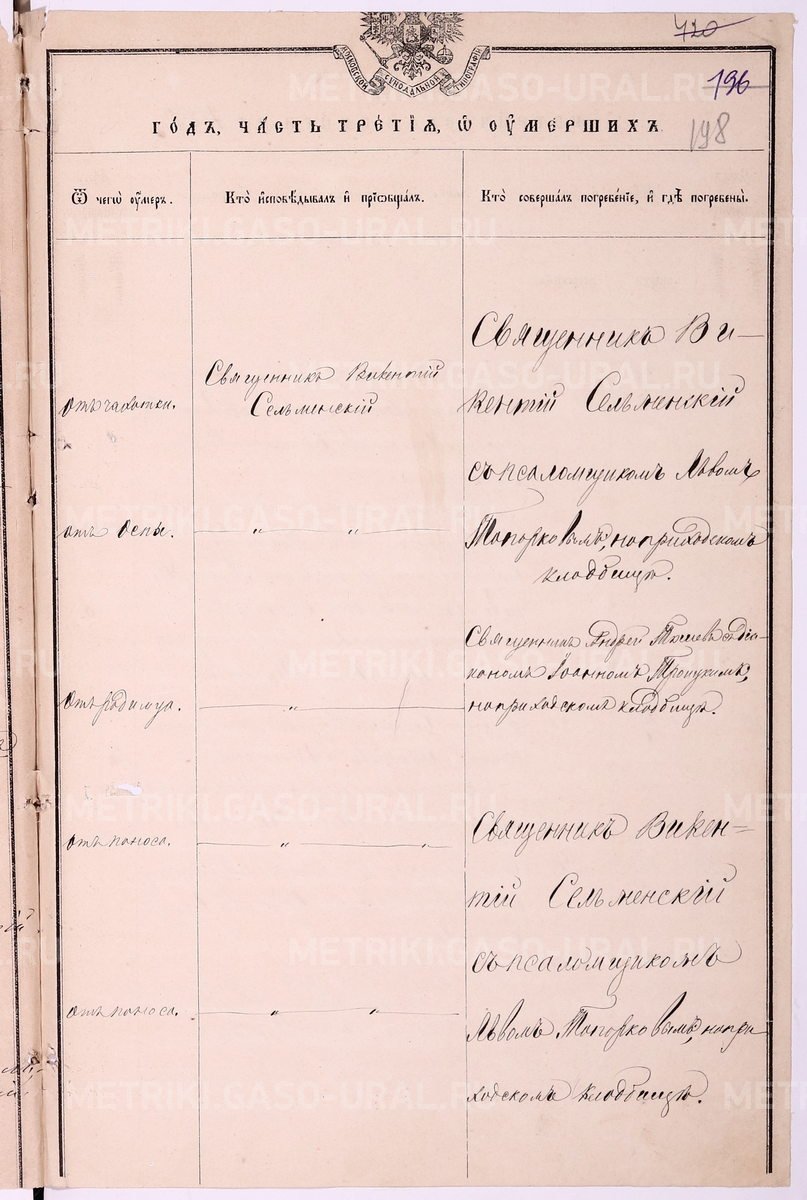 420
196
198
МОСКОВСКОЙ СѴНОДАЛЬНОЙ ТИПОГРАФІИ
ГО́ДЪ, ЧА́СТЬ ТРЕ́ТІѦ, Ѡ҆ ОУ҆МЕРШИХЪ
Ѿ чегѡ̀ оу҆́меръ.
Кто̀ и҆сповѣ́дывалъ и҆ прїѡбща́лъ.
Кто̀ соверша́лъ погребе́нїе, и҆ гдѣ̀ погребены̀.
отъ чахотки.
Священникъ Викентій
Сельменскій
Священникъ Ви–
кентій Сельменскій
съ псаломщикомъ Львомъ
Топорковымъ, на приходскомъ
кладбищѣ.
отъ оспы.
„ „
отъ родимца.
„
Священникъ Андрей съ діа–
кономъ Іоанномъ
на приходскомъ кладбищѣ.
отъ поноса.
„ „
Священникъ Викен=
тій Сельменскій
съ псаломщикомъ
Львомъ Топорковымъ, на при
ходскомъ кладбищѣ.
отъ поноса.
„ „
METRIKI.GASO-URAL.RU